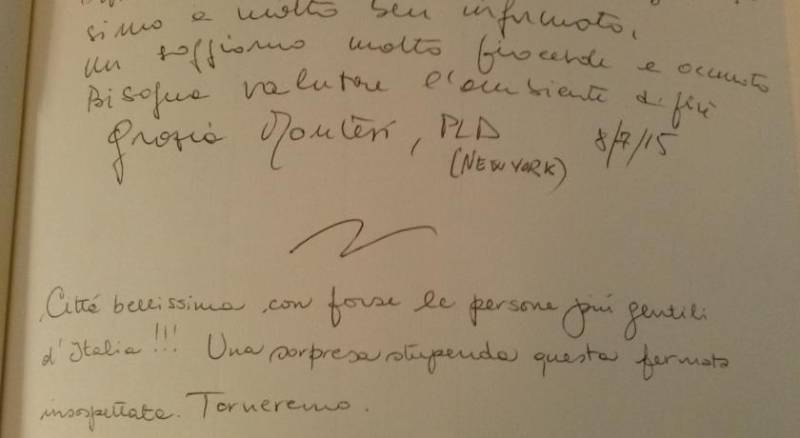 simo e molto ben informato,
un soggiorno molto piacevole e
Bisogna valutare l'ambiente di più
Grazia PLD 8/7/15
(NEW YORK)
Città bellissima, con forse le persone più gentili
d'Italia!!! Una sorpresa stupenda questa fermata
insospettata. Torneremo.